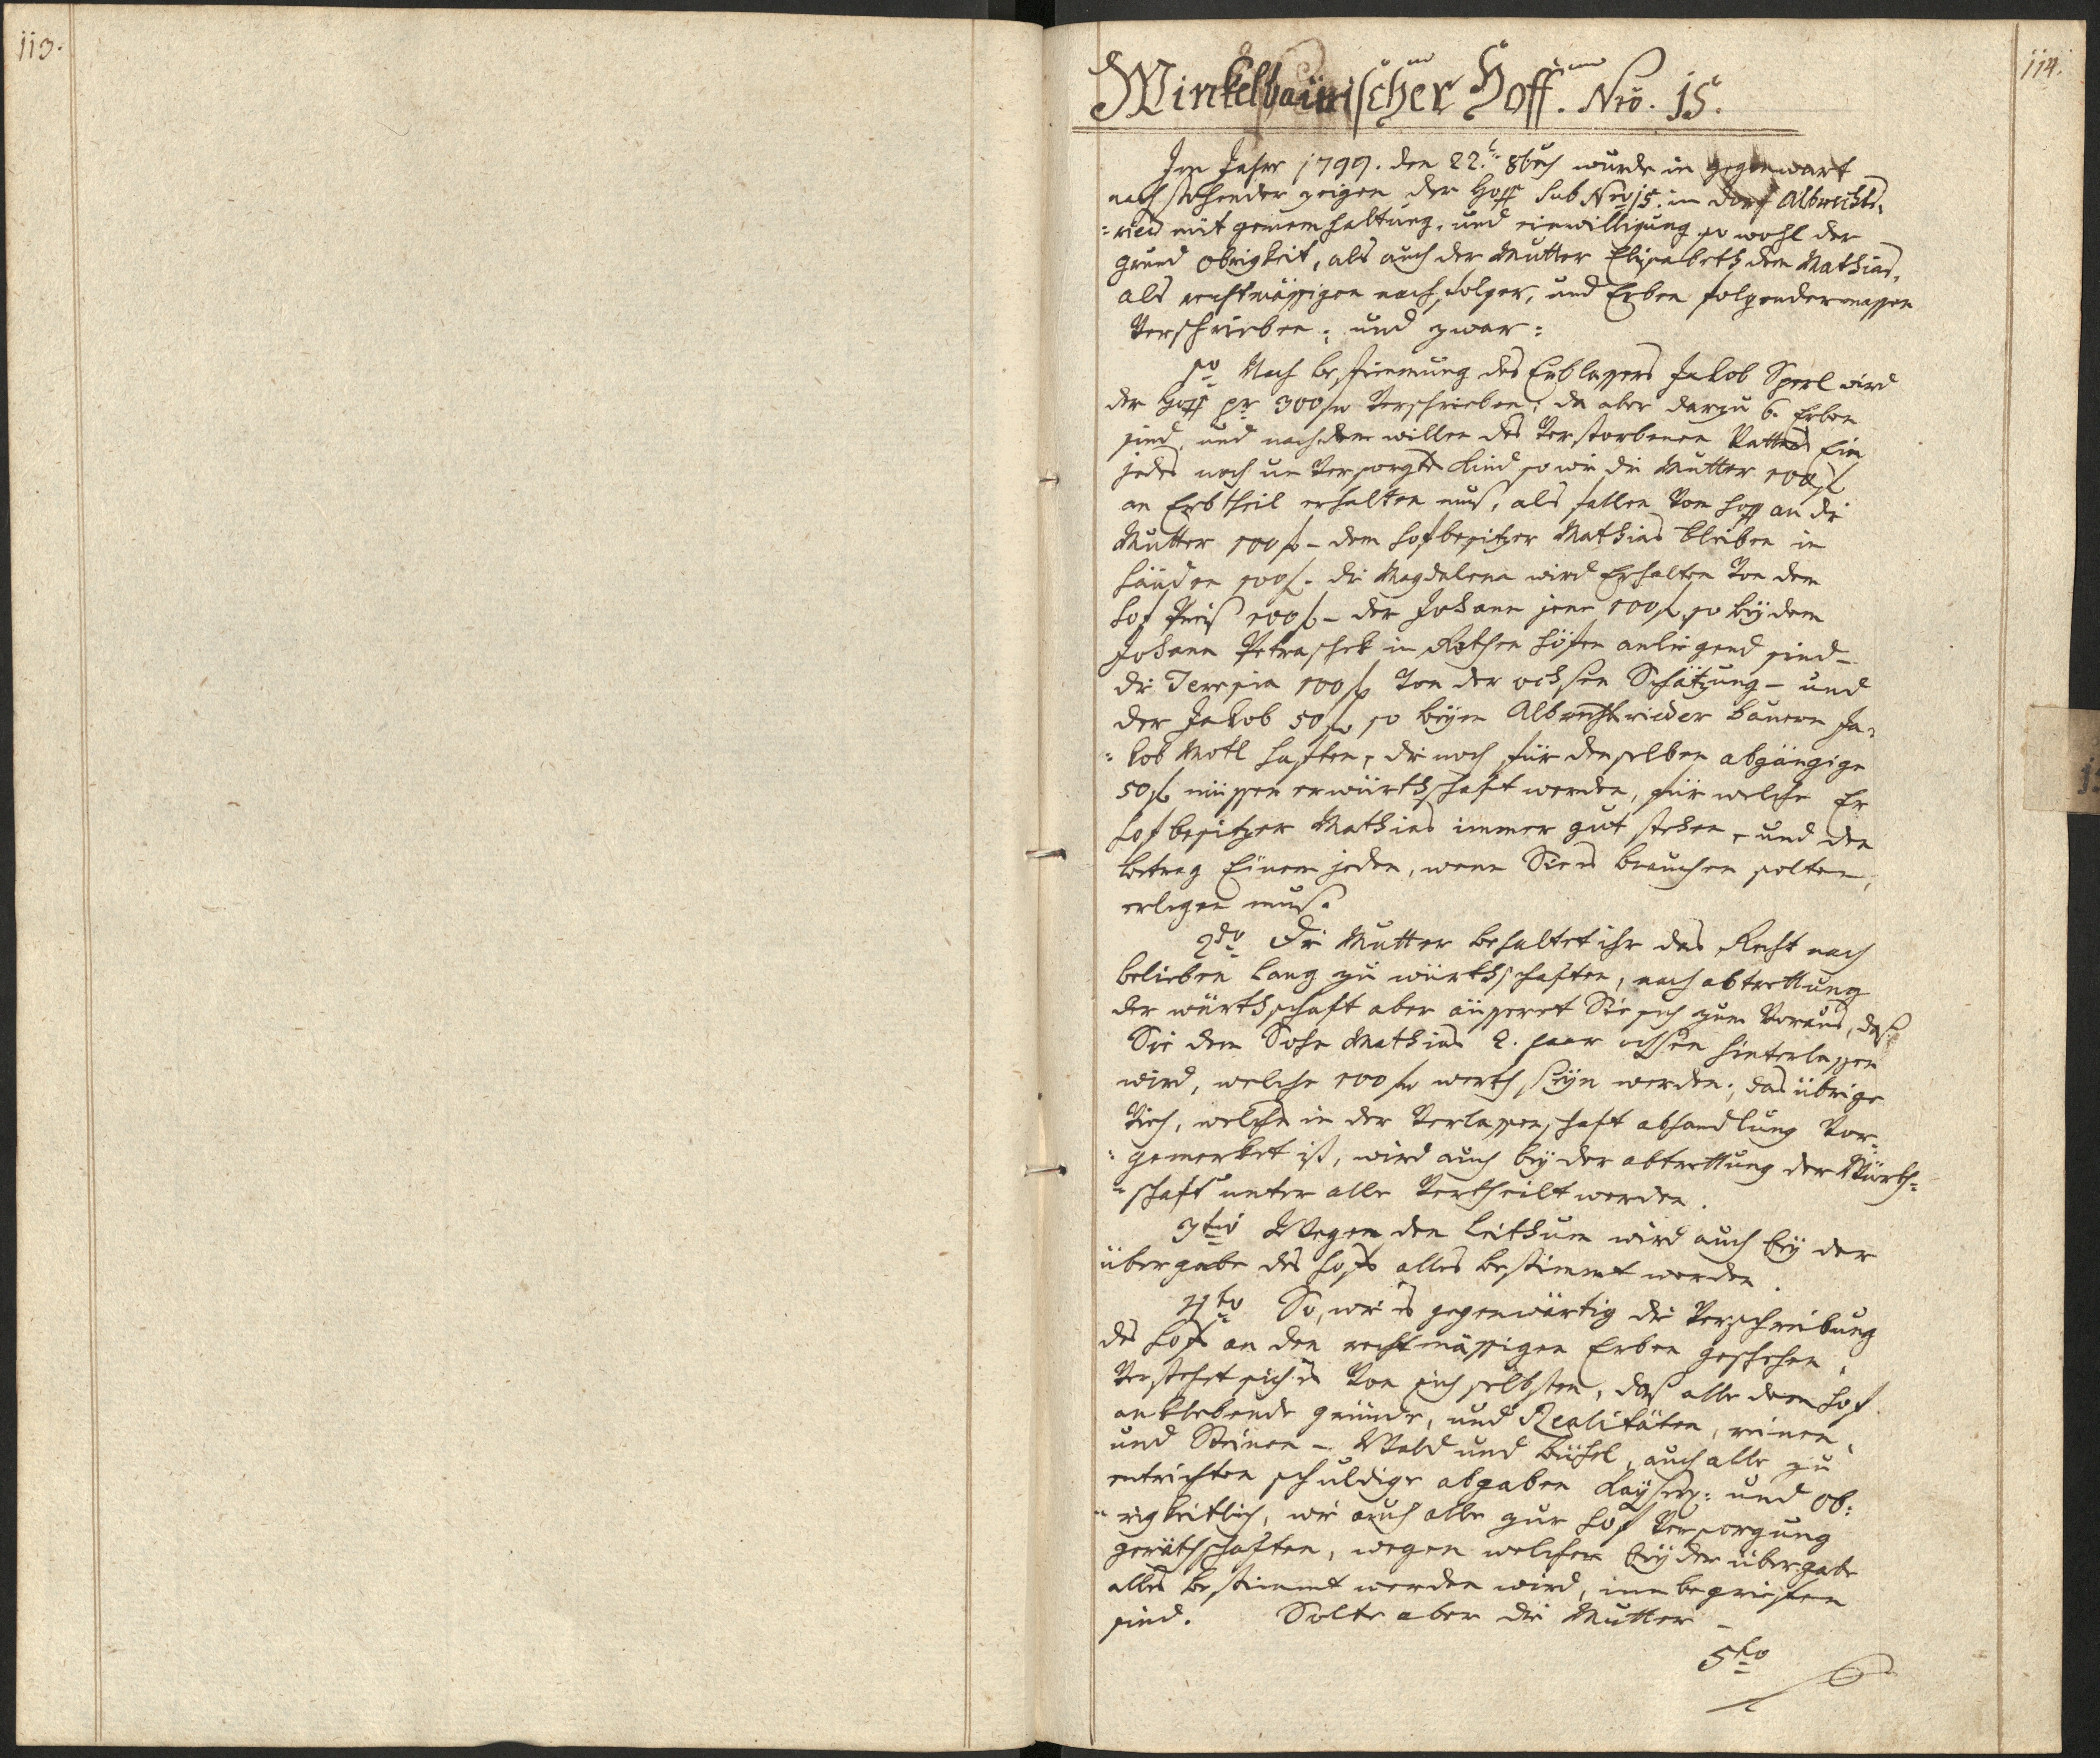 113.
114.
Winkelbaürischer Hoff. Nrō. 15.
Im Jahre 1799. den 22.t 8büch wurde in gegenwart
nachstehender zeigen der Hoff sub Nro 15. im Dorf Albrechts-
=ried mit genem haltung, und einwilligung so wohl der
grund obrigkeit, als auch der Mutter Elisabeth dem Mathias,
als rechtmässigen nachfolger, und Erben folgendermassen
Verschrieben: und zwar:
1o Nach bestimmung des Erblassers Jakob Sperl wird
der Hoff pr 300 f Verschrieben; da aber darzu 6. Erben
sind, und nach dem willen des Verstorbenen Vatters Ein
jedes noch un Versorgte Kind so wie die Mutter 100 f
an Erbtheil erhalten muß, als fallen Vom Hoff an die
Mutter 100 f – dem Hofbesitzer Mathias bleiben in
Händen 100 f. die Magdalena wird Erhalten Von dem
Hof Preiß 100 f – der Johann jene 100 f so bey dem
Johann Petraschek in Rothen Höfen anliegend sind –
die Teresia 100 f Von der ochsen Schätzung – und
der Jakob 50 f so beym Albrechtrieder bauern Ja-
=kob Motl haften, die noch für denselben abgängige
50 f müssen erwürthschaft werden, für welche Er
Hofbesitzer Mathias immer gut stehen, und den
betrag Einem jeden, wenn Sie es brauchen solten,
erlegen muß.
2do Die Mutter behaltet ihr das Recht nach
belieben lang zu würthschaften, nach abtrettung
der würthschaft aber äusseret Sie sich zum Voraus, daß
Sie dem Sohn Mathias 2. paar ochsen hinterlassen
wird, welche 100 f werth seyn werden; das übrige
Vieh, welches in der Verlassenschaft abhandlung Vor-
=gemerket ist, wird auch bey der abtrettung der Würth=
=schaft unter alle Vertheilt werden.
3tio Wegen den leithum wird auch bey der
übergabe des Hofs alles bestimmt werden.
4to So, wie es gegenwärtig die Verschreibung
des Hofs an den rechtmässigen Erben geschehen,
Verstehet sich es Von sich selbsten, daß alle dem Hof
anklebende gründe, und Realitäten, reinen,
und Steinen – Wald und bühel, auch alle zu
entrichten schuldige abgaben Kayserl: und Ob:
=rigkeitlich, wie auch alle zur Hof Versorgung
geräthschaften, wegen welcher bey der übergabe
alles bestimmt werden wird, inn begriefen
sind. Solte aber die Mutter –
5to